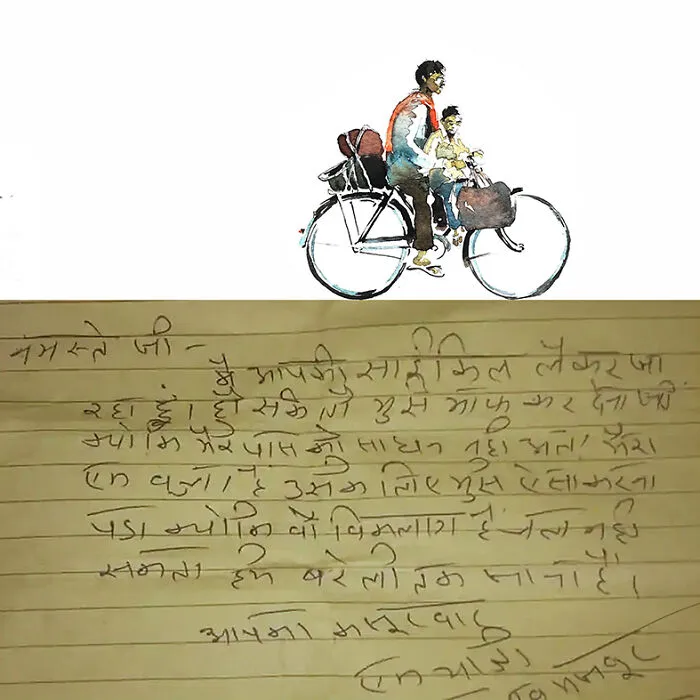 नमस्ते जी -
मै आपकी साईकिल लेकर जा
रहा हुं। हो सके तो मुझे माफ कर देना जी
क्योकि मेरे पास को साधन नही अता मेरा
एक बच्चा है उसके लिए मुझे ऐसा करना
पडा क्योकि वो विकलांग है चल नही
सकता हमे बरेली तक जाना है।
आपका कसूरवार
एक यात्री
मजदूर